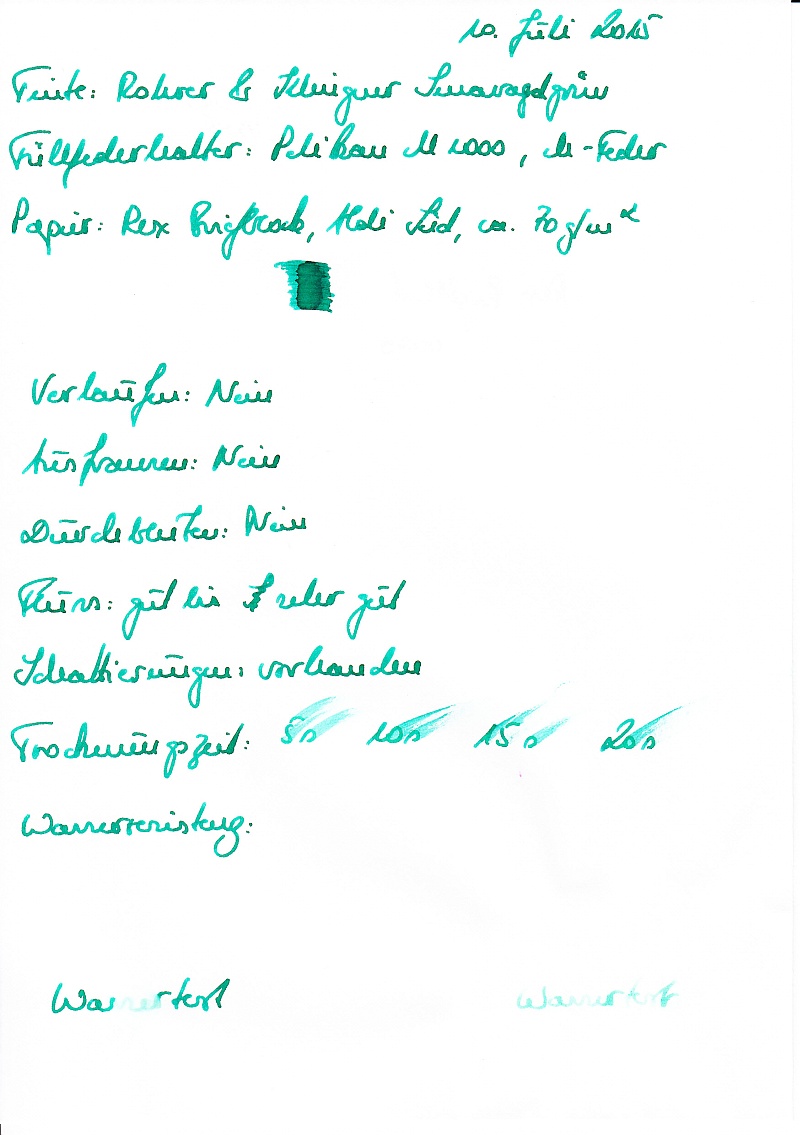 10. Juli 2015
Tinte: Rohrer & Klingner Smaragdgrün
Füllfederhalter: Pelikan M 1000, M-Feder
Papier: Rex Briefblock, Aldi Süd, ca. 70 g/m²
Verlaufen: Nein
Ausfransen: Nein
Durchbluten: Nein
Fluss: gut bis sehr gut
Schattierungen: vorhanden
Trocknungszeit: 5s 10s 15s 20s
Wasserresistenz:
Wassertest Wassertest